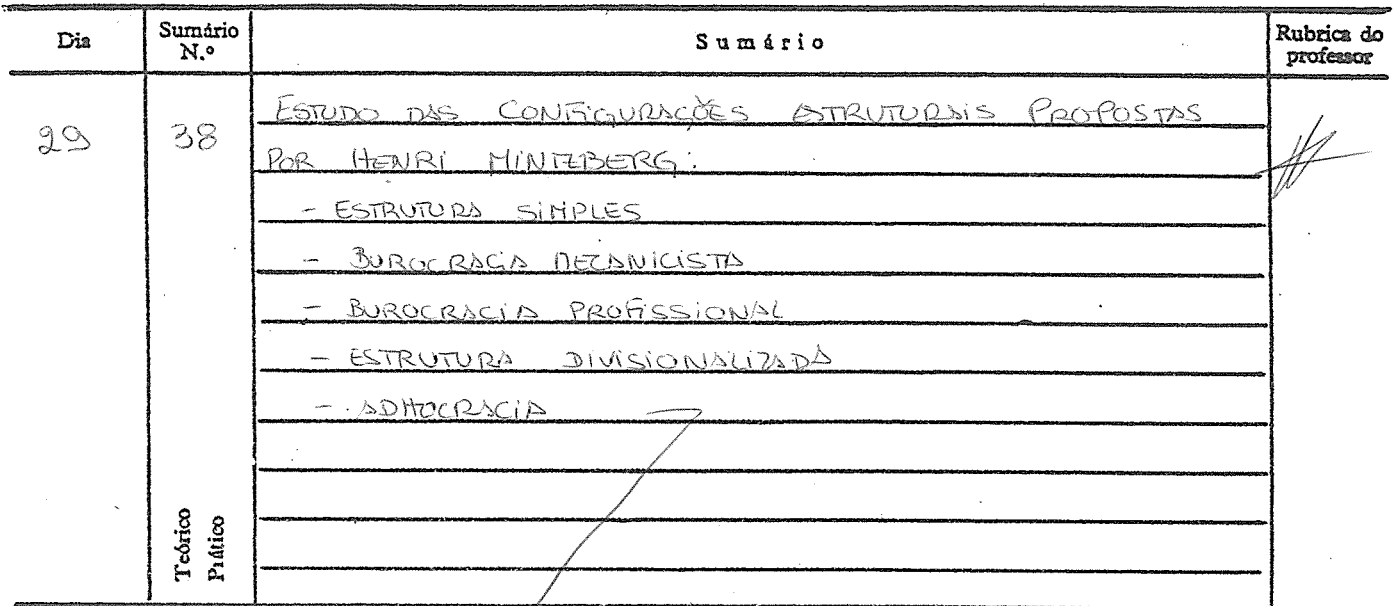 Dia
Sumário N.º
Sumário
Rubrica do professor
29
38
ESTUDO DAS CONFIGURAÇÕES ESTRUTURAIS PROPOSTAS
POR HENRI MINTZBERG:
- ESTRUTURA SIMPLES
- BUROCRACIA MECANICISTA
- BUROCRACIA PROFISSIONAL
- ESTRUTURA DIVISIONALIZADA
- ADHOCRACIA
Teórico
Prático